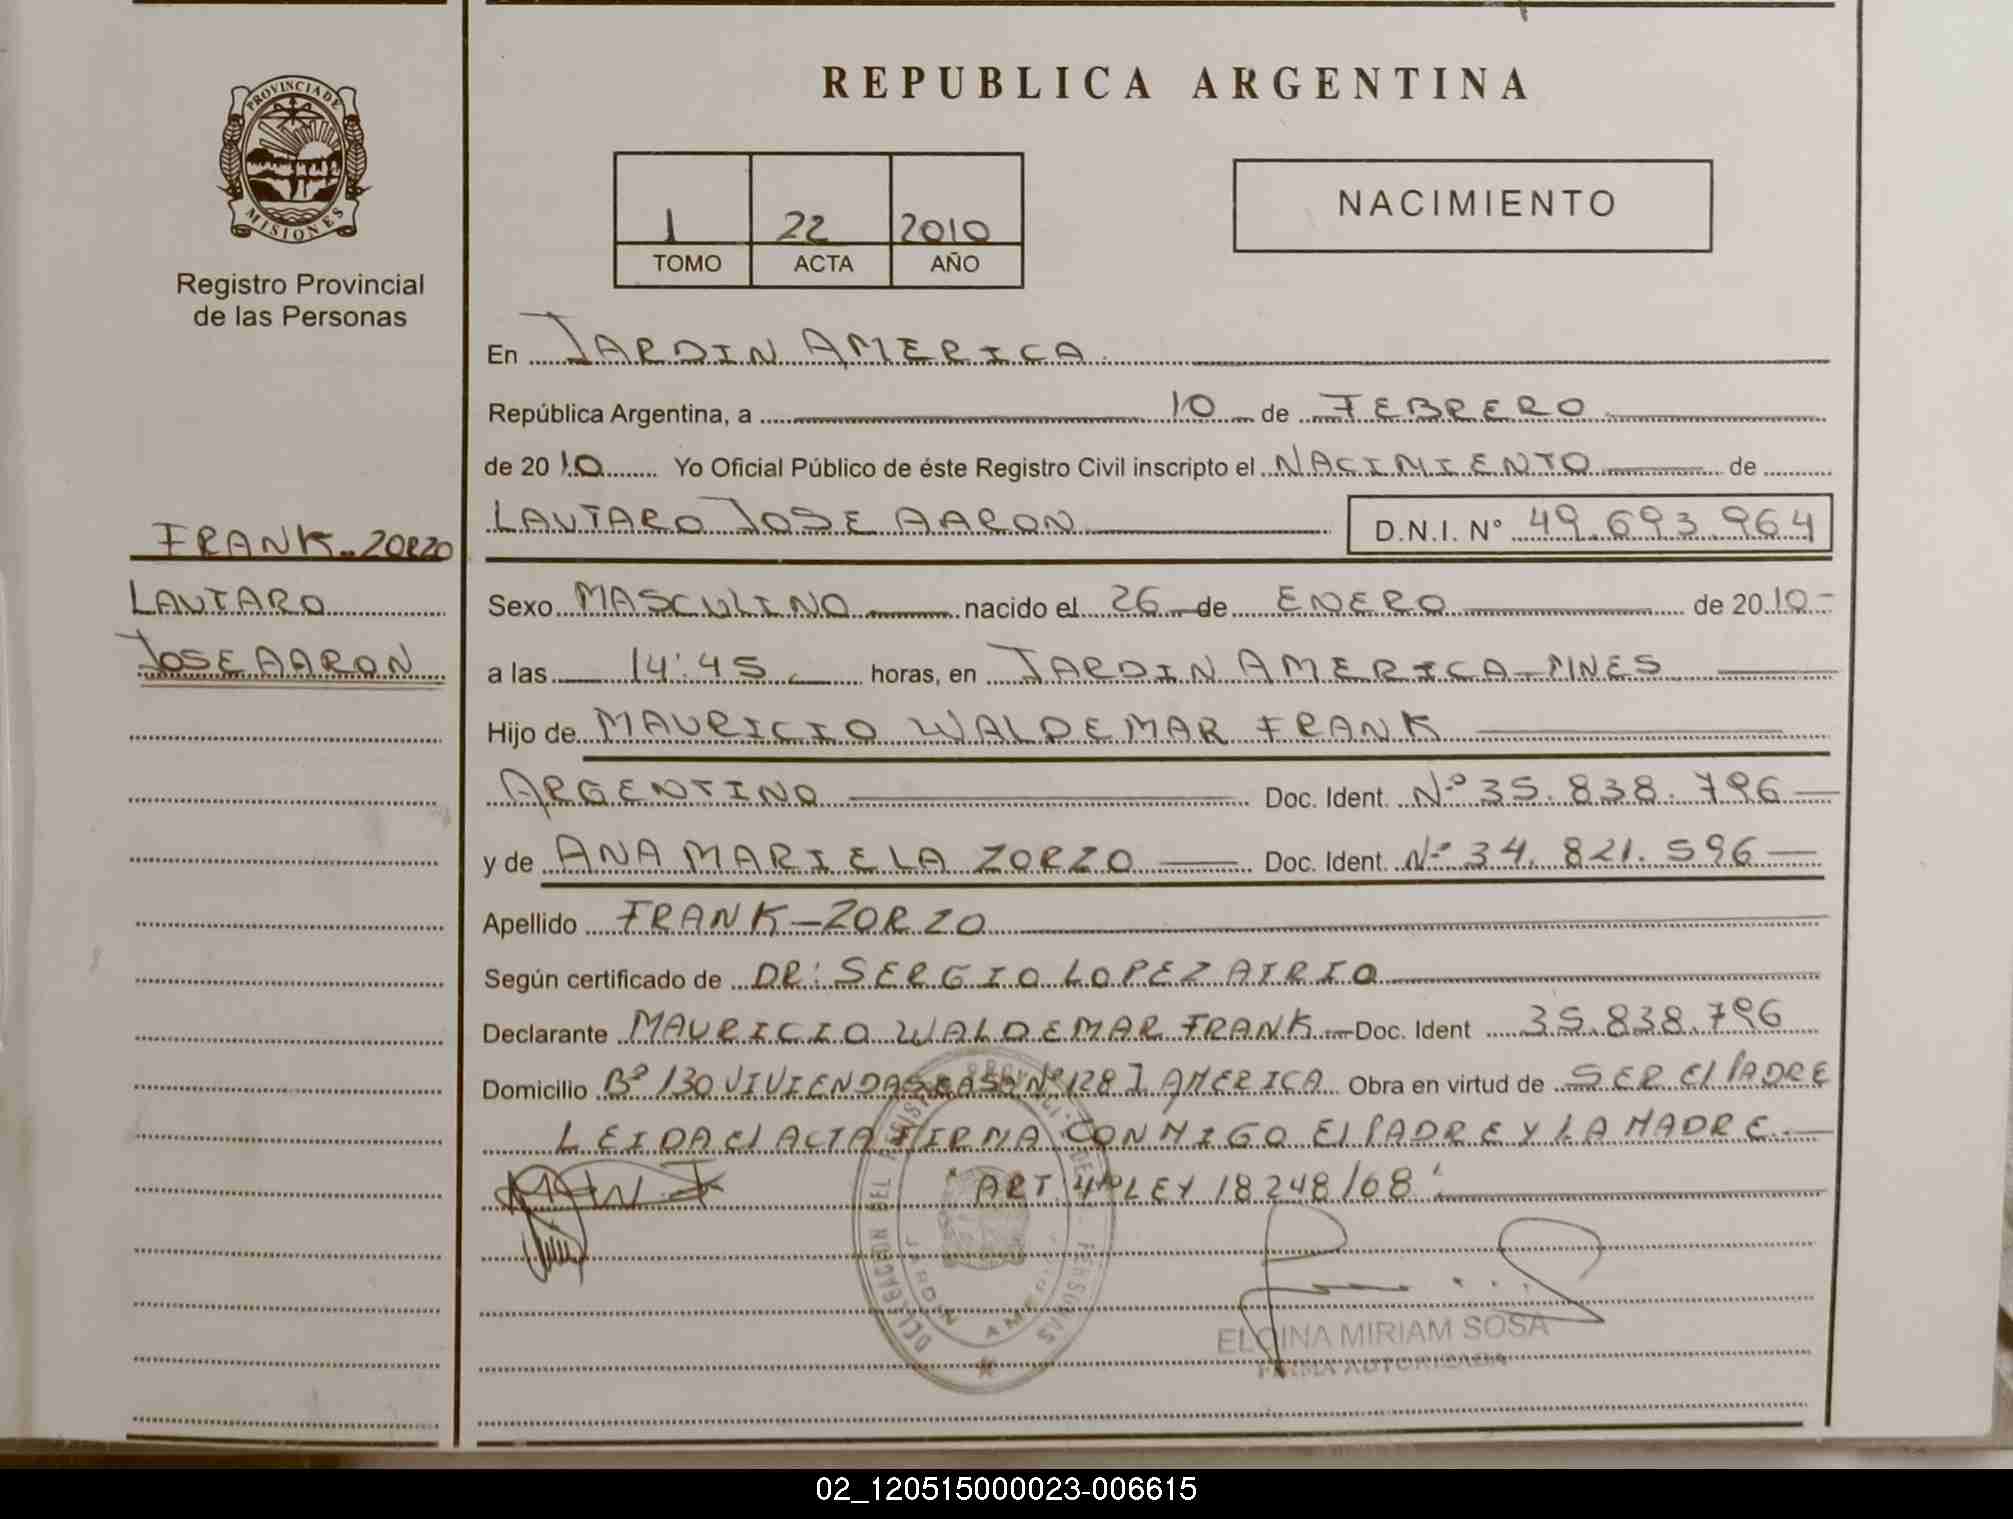 PROVINCIA DE
MISIONES
Registro Provincial
de las Personas
FRANK-ZORZO
LAUTARO
JOSE AARON
REPUBLICA ARGENTINA
1 22 2010
TOMO ACTA AÑO
NACIMIENTO
En JARDIN AMERICA
República Argentina, a 10 de FEBRERO
de 20 10 Yo Oficial Público de éste Registro Civil inscripto el NACIMIENTO de
LAUTARO JOSE AARON D.N.I. N° 49.693.964
Sexo MASCULINO nacido el 26 de ENERO de 20 10
a las 14:45 horas, en JARDIN AMERICA-MNES
Hijo de MAURICIO WALDEMAR FRANK
ARGENTINO Doc. Ident. Nº 35.838.796
y de ANA MARIELA ZORZO Doc. Ident. Nº 34.821.596
Apellido FRANK-ZORZO
Según certificado de DR: SERGIO LOPEZ AIRIO
Declarante MAURICIO WALDEMAR FRANK Doc. Ident 35.838.796
Domicilio Bº 130 VIVIENDAS CASA Nº 128 J. AMERICA Obra en virtud de SER El PADRE
LEIDA El ACTA FIRMA CONMIGO El PADRE Y LA MADRE.
ART. 4º LEY 18248/68
DELEGACION DEL REGISTRO PROVINCIAL DE LAS PERSONAS
JARDIN AMERICA
ELCINA MIRIAM SOSA
FIRMA AUTORIZADA
02_120515000023-006615